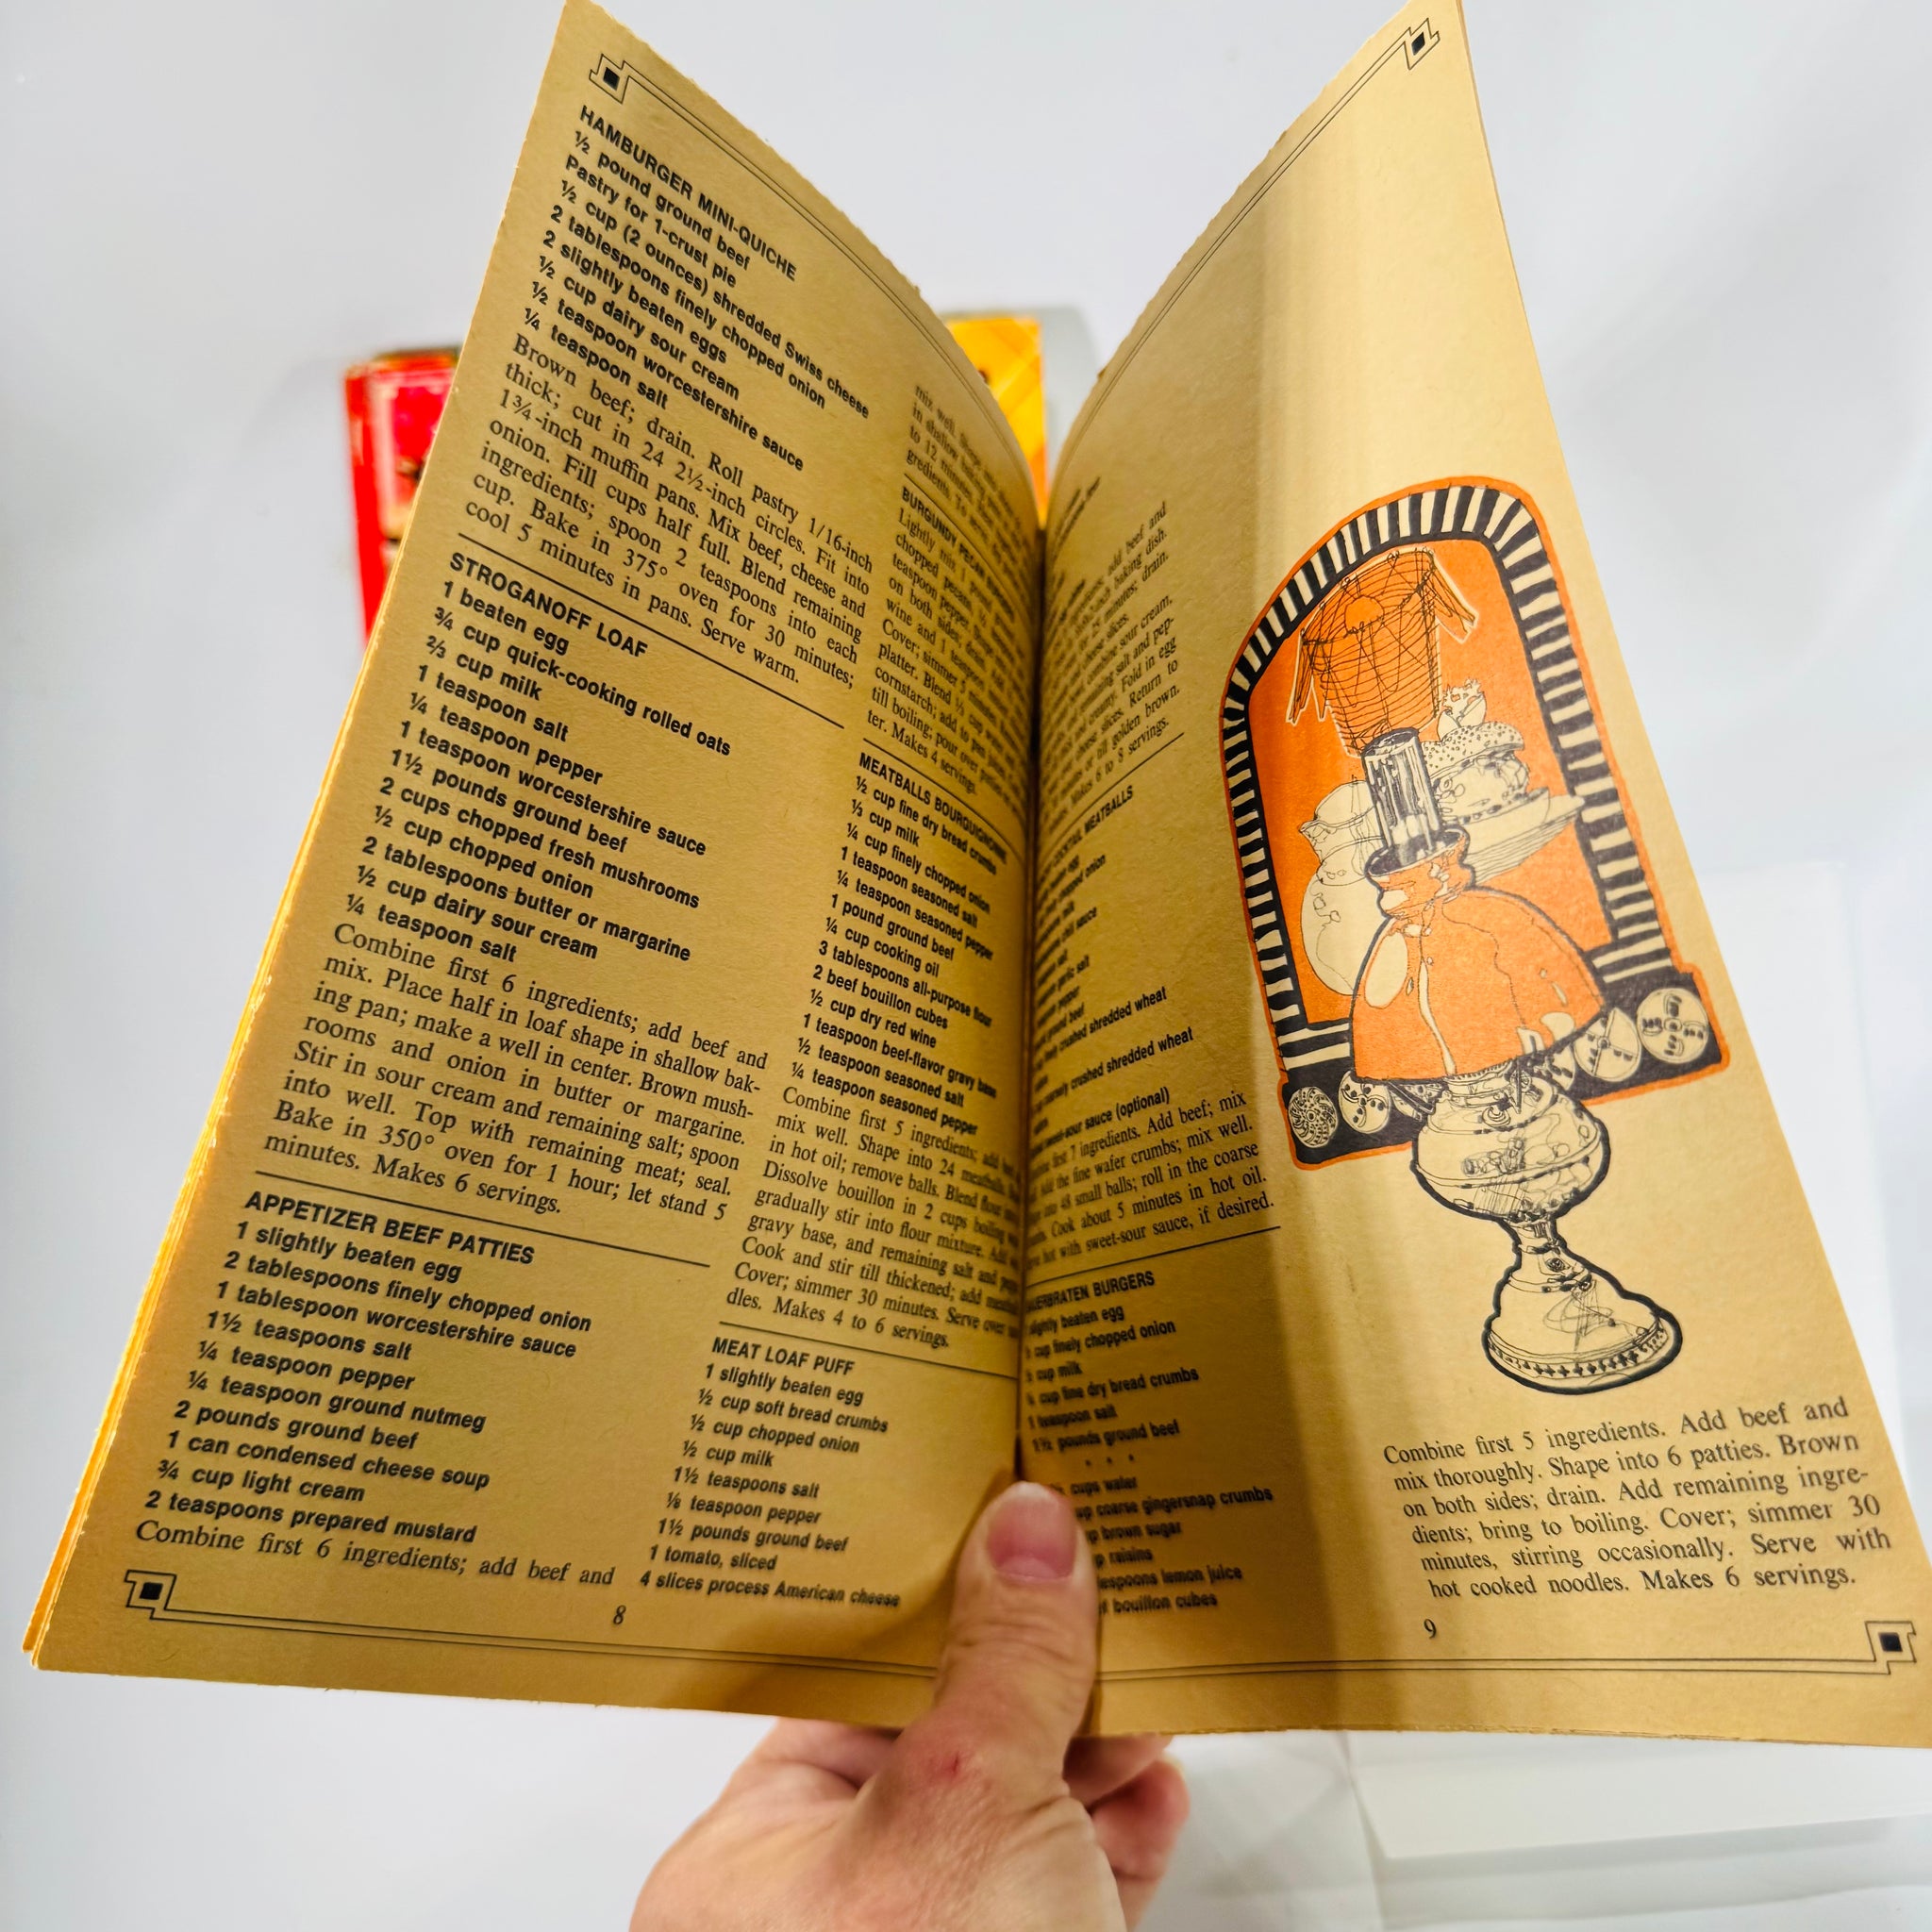 HAMBURGER MINI-QUICHE
½ pound ground beef
Pastry for 1-crust pie
½ cup (2 ounces) shredded Swiss cheese
2 tablespoons finely chopped onion
2 slightly beaten eggs
½ cup dairy sour cream
½ teaspoon worcestershire sauce
¼ teaspoon salt
Brown beef; drain. Roll pastry 1/16-inch
thick; cut in 24 2½-inch circles. Fit into
1¾-inch muffin pans. Mix beef, cheese and
onion. Fill cups half full. Blend remaining
ingredients; spoon 2 teaspoons into each
cup. Bake in 375° oven for 30 minutes;
cool 5 minutes in pans. Serve warm.
STROGANOFF LOAF
1 beaten egg
¾ cup quick-cooking rolled oats
⅔ cup milk
1 teaspoon salt
¼ teaspoon pepper
1 teaspoon worcestershire sauce
1½ pounds ground beef
2 cups chopped fresh mushrooms
½ cup chopped onion
2 tablespoons butter or margarine
½ cup dairy sour cream
¼ teaspoon salt
Combine first 6 ingredients; add beef and
mix. Place half in loaf shape in shallow bak-
ing pan; make a well in center. Brown mush-
rooms and onion in butter or margarine.
Stir in sour cream and remaining salt; spoon
into well. Top with remaining meat; seal.
Bake in 350° oven for 1 hour; let stand 5
minutes. Makes 6 servings.
APPETIZER BEEF PATTIES
1 slightly beaten egg
2 tablespoons finely chopped onion
1 tablespoon worcestershire sauce
1½ teaspoons salt
¼ teaspoon pepper
¼ teaspoon ground nutmeg
2 pounds ground beef
1 can condensed cheese soup
¾ cup light cream
2 teaspoons prepared mustard
Combine first 6 ingredients; add beef and
mix well.
in shallow
to 12 minutes
gredients. To
BURGUNDY PECAN
Lightly mix 1
chopped pecans,
teaspoon pepper.
on both sides;
wine and 1 teaspoon
Cover; simmer 5 minutes
platter. Blend ½ cup
cornstarch; add to pan
till boiling; pour over
ter. Makes 4 servings.
MEATBALLS BOURGUIGNONNE
½ cup fine dry bread crumbs
⅓ cup milk
¼ cup finely chopped onion
1 teaspoon seasoned salt
¼ teaspoon seasoned pepper
1 pound ground beef
¼ cup cooking oil
3 tablespoons all-purpose flour
2 beef bouillon cubes
½ cup dry red wine
1 teaspoon beef-flavor gravy base
½ teaspoon seasoned salt
¼ teaspoon seasoned pepper
Combine first 5 ingredients; add
mix well. Shape into 24 meatballs.
in hot oil; remove balls. Blend flour
Dissolve bouillon in 2 cups boiling
gradually stir into flour mixture. Add
gravy base, and remaining salt and
Cook and stir till thickened; add
Cover; simmer 30 minutes. Serve over
dles. Makes 4 to 6 servings.
MEAT LOAF PUFF
1 slightly beaten egg
½ cup soft bread crumbs
½ cup chopped onion
½ cup milk
1½ teaspoons salt
⅛ teaspoon pepper
1½ pounds ground beef
1 tomato, sliced
4 slices process American cheese
8
add beef and
baking dish.
minutes; drain.
cheese slices.
combine sour cream,
remaining salt and pep-
creamy. Fold in egg
cheese slices. Return to
or till golden brown.
Makes 6 to 8 servings.
COCKTAIL MEATBALLS
egg
chopped onion
milk
chili sauce
salt
garlic salt
pepper
ground beef
finely crushed shredded wheat
coarsely crushed shredded wheat
sweet-sour sauce (optional)
first 7 ingredients. Add beef; mix
Add the fine wafer crumbs; mix well.
into 48 small balls; roll in the coarse
Cook about 5 minutes in hot oil.
hot with sweet-sour sauce, if desired.
BURGERS
slightly beaten egg
cup finely chopped onion
cup milk
cup fine dry bread crumbs
1 teaspoon salt
1½ pounds ground beef
cups water
coarse gingersnap crumbs
brown sugar
raisins
lemon juice
bouillon cubes
Combine first 5 ingredients. Add beef and
mix thoroughly. Shape into 6 patties. Brown
on both sides; drain. Add remaining ingre-
dients; bring to boiling. Cover; simmer 30
minutes, stirring occasionally. Serve with
hot cooked noodles. Makes 6 servings.
9